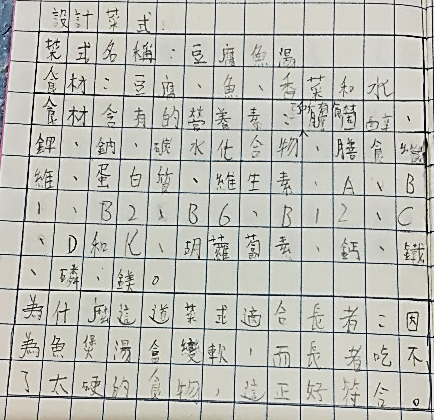 設計菜式
菜式名稱：豆腐魚湯
食材：豆腐、魚、香菜和水
食材含有的營養素：膽固醇、
鉀、鈉、碳水化合物、膳食纖
維、蛋白質、維生素、A、B
1、B2、B6、B12、C
、D和K、胡蘿蔔素、鈣、鐵
、磷、鎂。
為什麼這道菜式適合長者：因
為魚煲湯會變軟，而長者吃不
了太硬的食物，這正好符合。